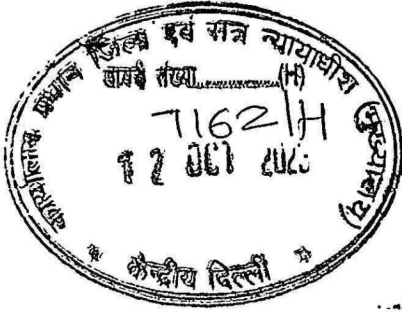 कार्यालय प्रधान जिला एवं सत्र न्यायाधीश (मुख्यालय)
डायरी संख्या..............(H)
7162/H
12 OCT
केन्द्रीय दिल्ली